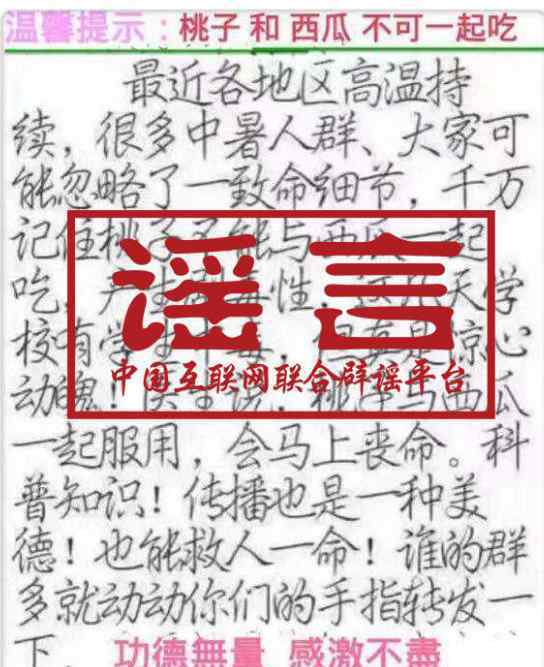 温馨提示：桃子 和 西瓜 不可一起吃
最近各地区高温持
续，很多中暑人群、大家可
能忽略了一致命细节，千万
记住桃子不能与西瓜一起
吃，产生剧毒性，这几天学
校有学生中毒，但真是惊心
动魄！医生说：桃子与西瓜
谣言
中国互联网联合辟谣平台
一起服用，会马上丧命。科
普知识！传播也是一种美
德！也能救人一命！谁的群
多就动动你们的手指转发一
下．
功德無量 感激不盡